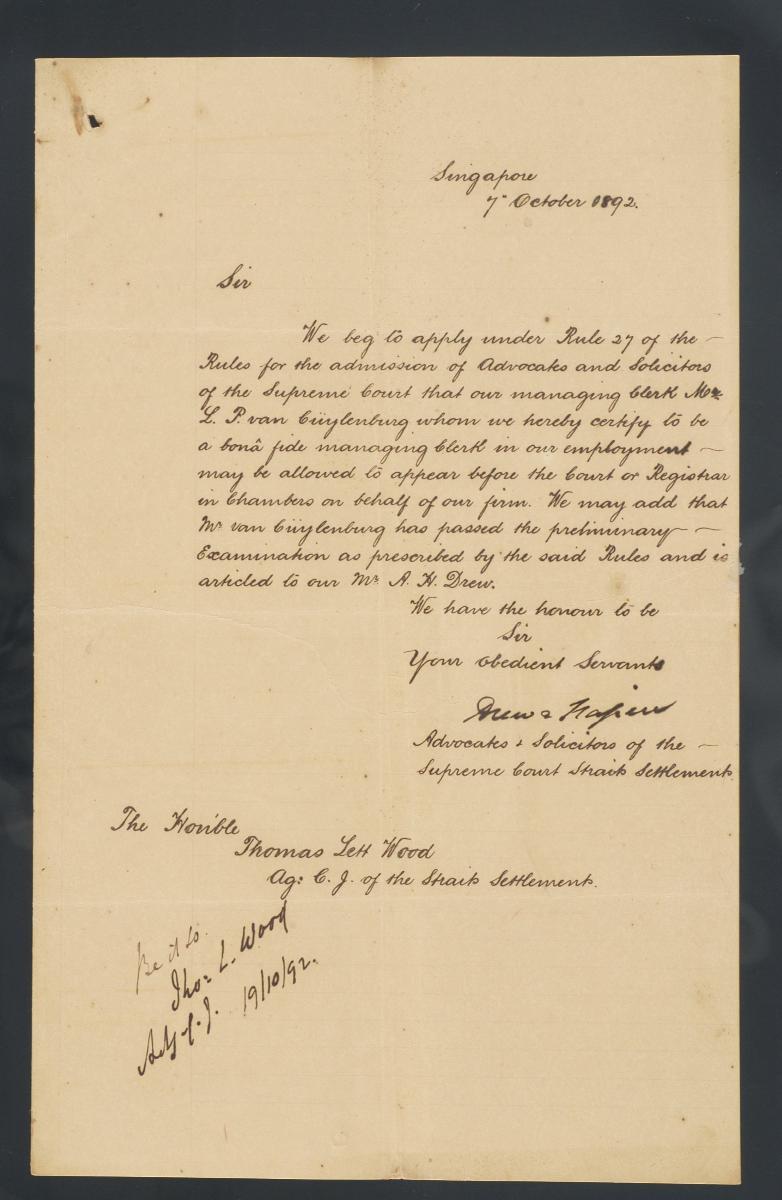 Singapore
7th October 1892.
Sir
We beg to apply under Rule 27 of the —
Rules for the admission of Advocates and Solicitors
of the Supreme Court that our managing Clerk Mr.
L. P. van Cüylenburg whom we hereby certify to be
a bonâ fide managing Clerk in our employment —
may be allowed to appear before the Court or Registrar
in Chambers on behalf of our firm. We may add that
Mr van Cüylenburg has passed the preliminary — —
Examination as prescribed by the said Rules and is
articled to our Mr. A. H. Drew.
We have the honour to be
Sir
Your obedient Servants
Drew & Napier
Advocates & Solicitors of the —
Supreme Court Straits Settlements.
The Hon'ble
Thomas Lett Wood
Ag: C. J. of the Straits Settlements.
Be it so.
Tho: L. Wood
Actg C. J. 19/10/92.